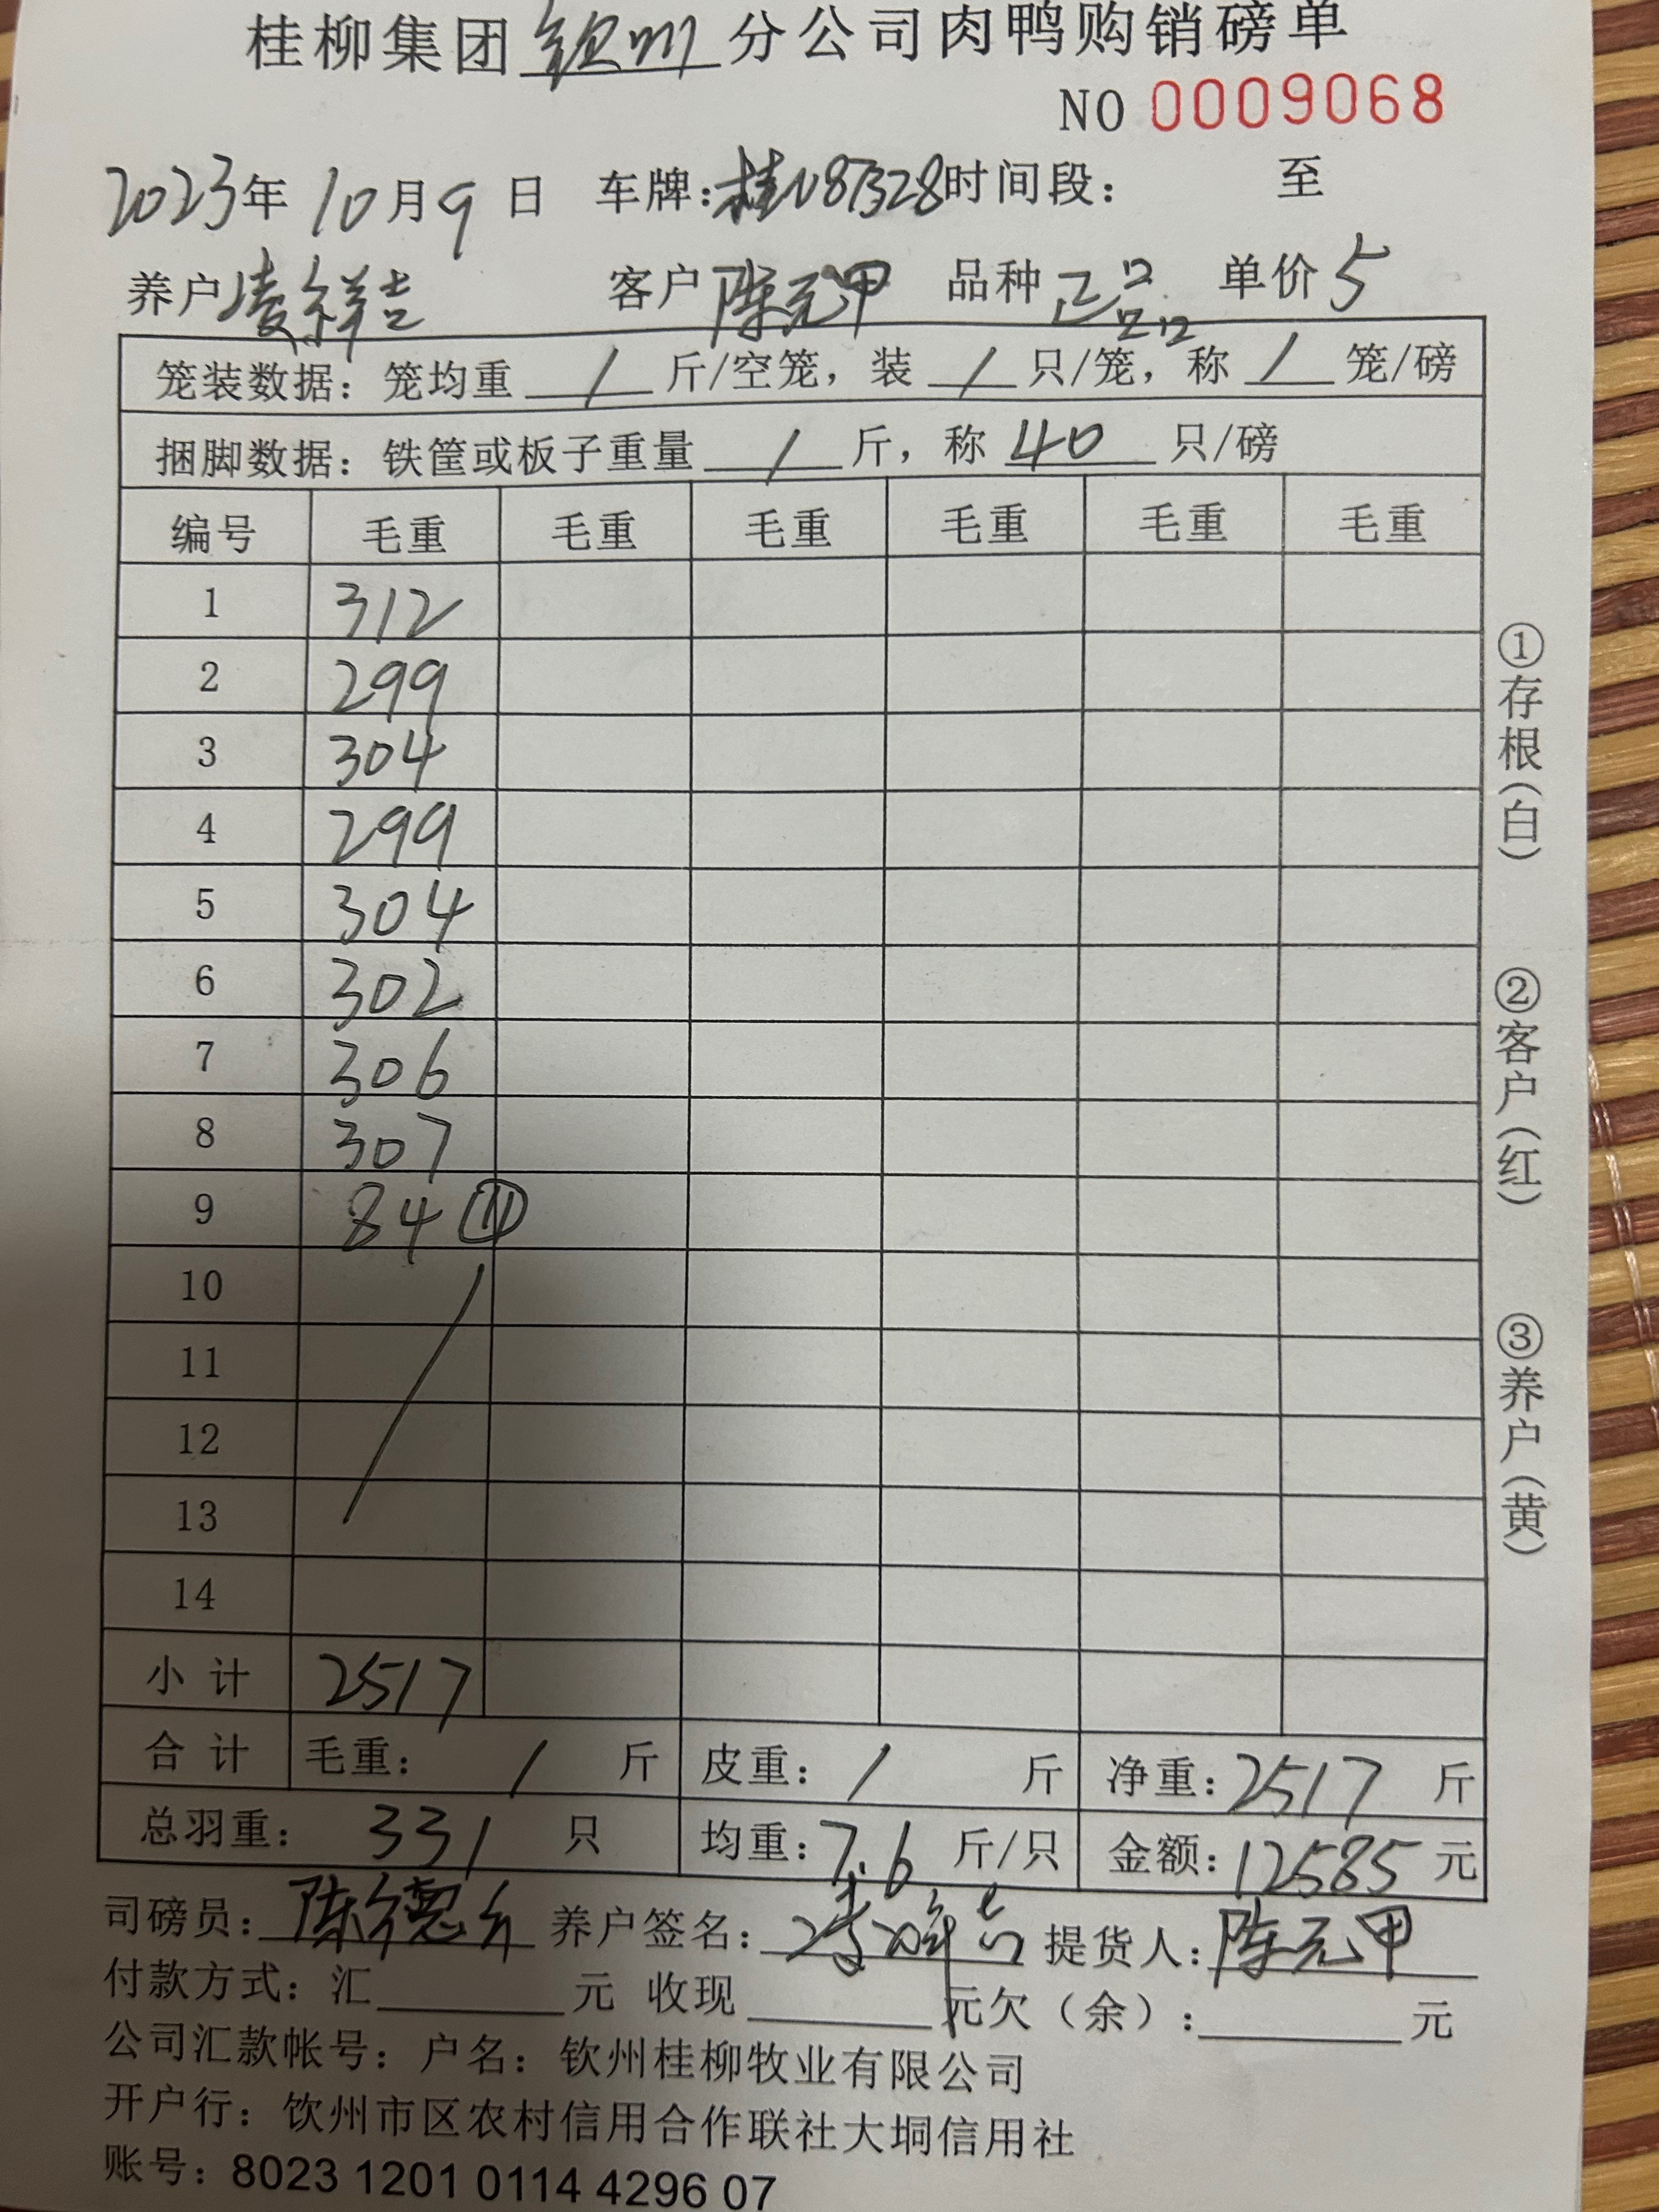 桂柳集团钦州分公司肉鸭购销磅单
NO 0009068
2023年10月9日 车牌:桂N87B28时间段: 至
养户凌祥吉 客户陈元甲 品种正品 单价5
笼装数据: 笼均重 / 斤/空笼, 装 / 只/笼, 称 / 笼/磅
捆脚数据: 铁筐或板子重量 / 斤, 称 40 只/磅
编号 毛重 毛重 毛重 毛重 毛重 毛重
1 312
2 299
3 304
4 299
5 304
6 302
7 306
8 307
9 84 ⑪
10
11
12
13
14
小计 2517
合计 毛重: / 斤 皮重: / 斤 净重: 2517 斤
总羽重: 331 只 均重: 7.6 斤/只 金额: 12585 元
司磅员: 陈德 养户签名: 祥吉 提货人: 陈元甲
付款方式: 汇 元 收现 元欠(余): 元
公司汇款帐号: 户名: 钦州桂柳牧业有限公司
开户行: 饮州市区农村信用合作联社大垌信用社
账号: 8023 1201 0114 4296 07
①存根(白)
②客户(红)
③养户(黄)